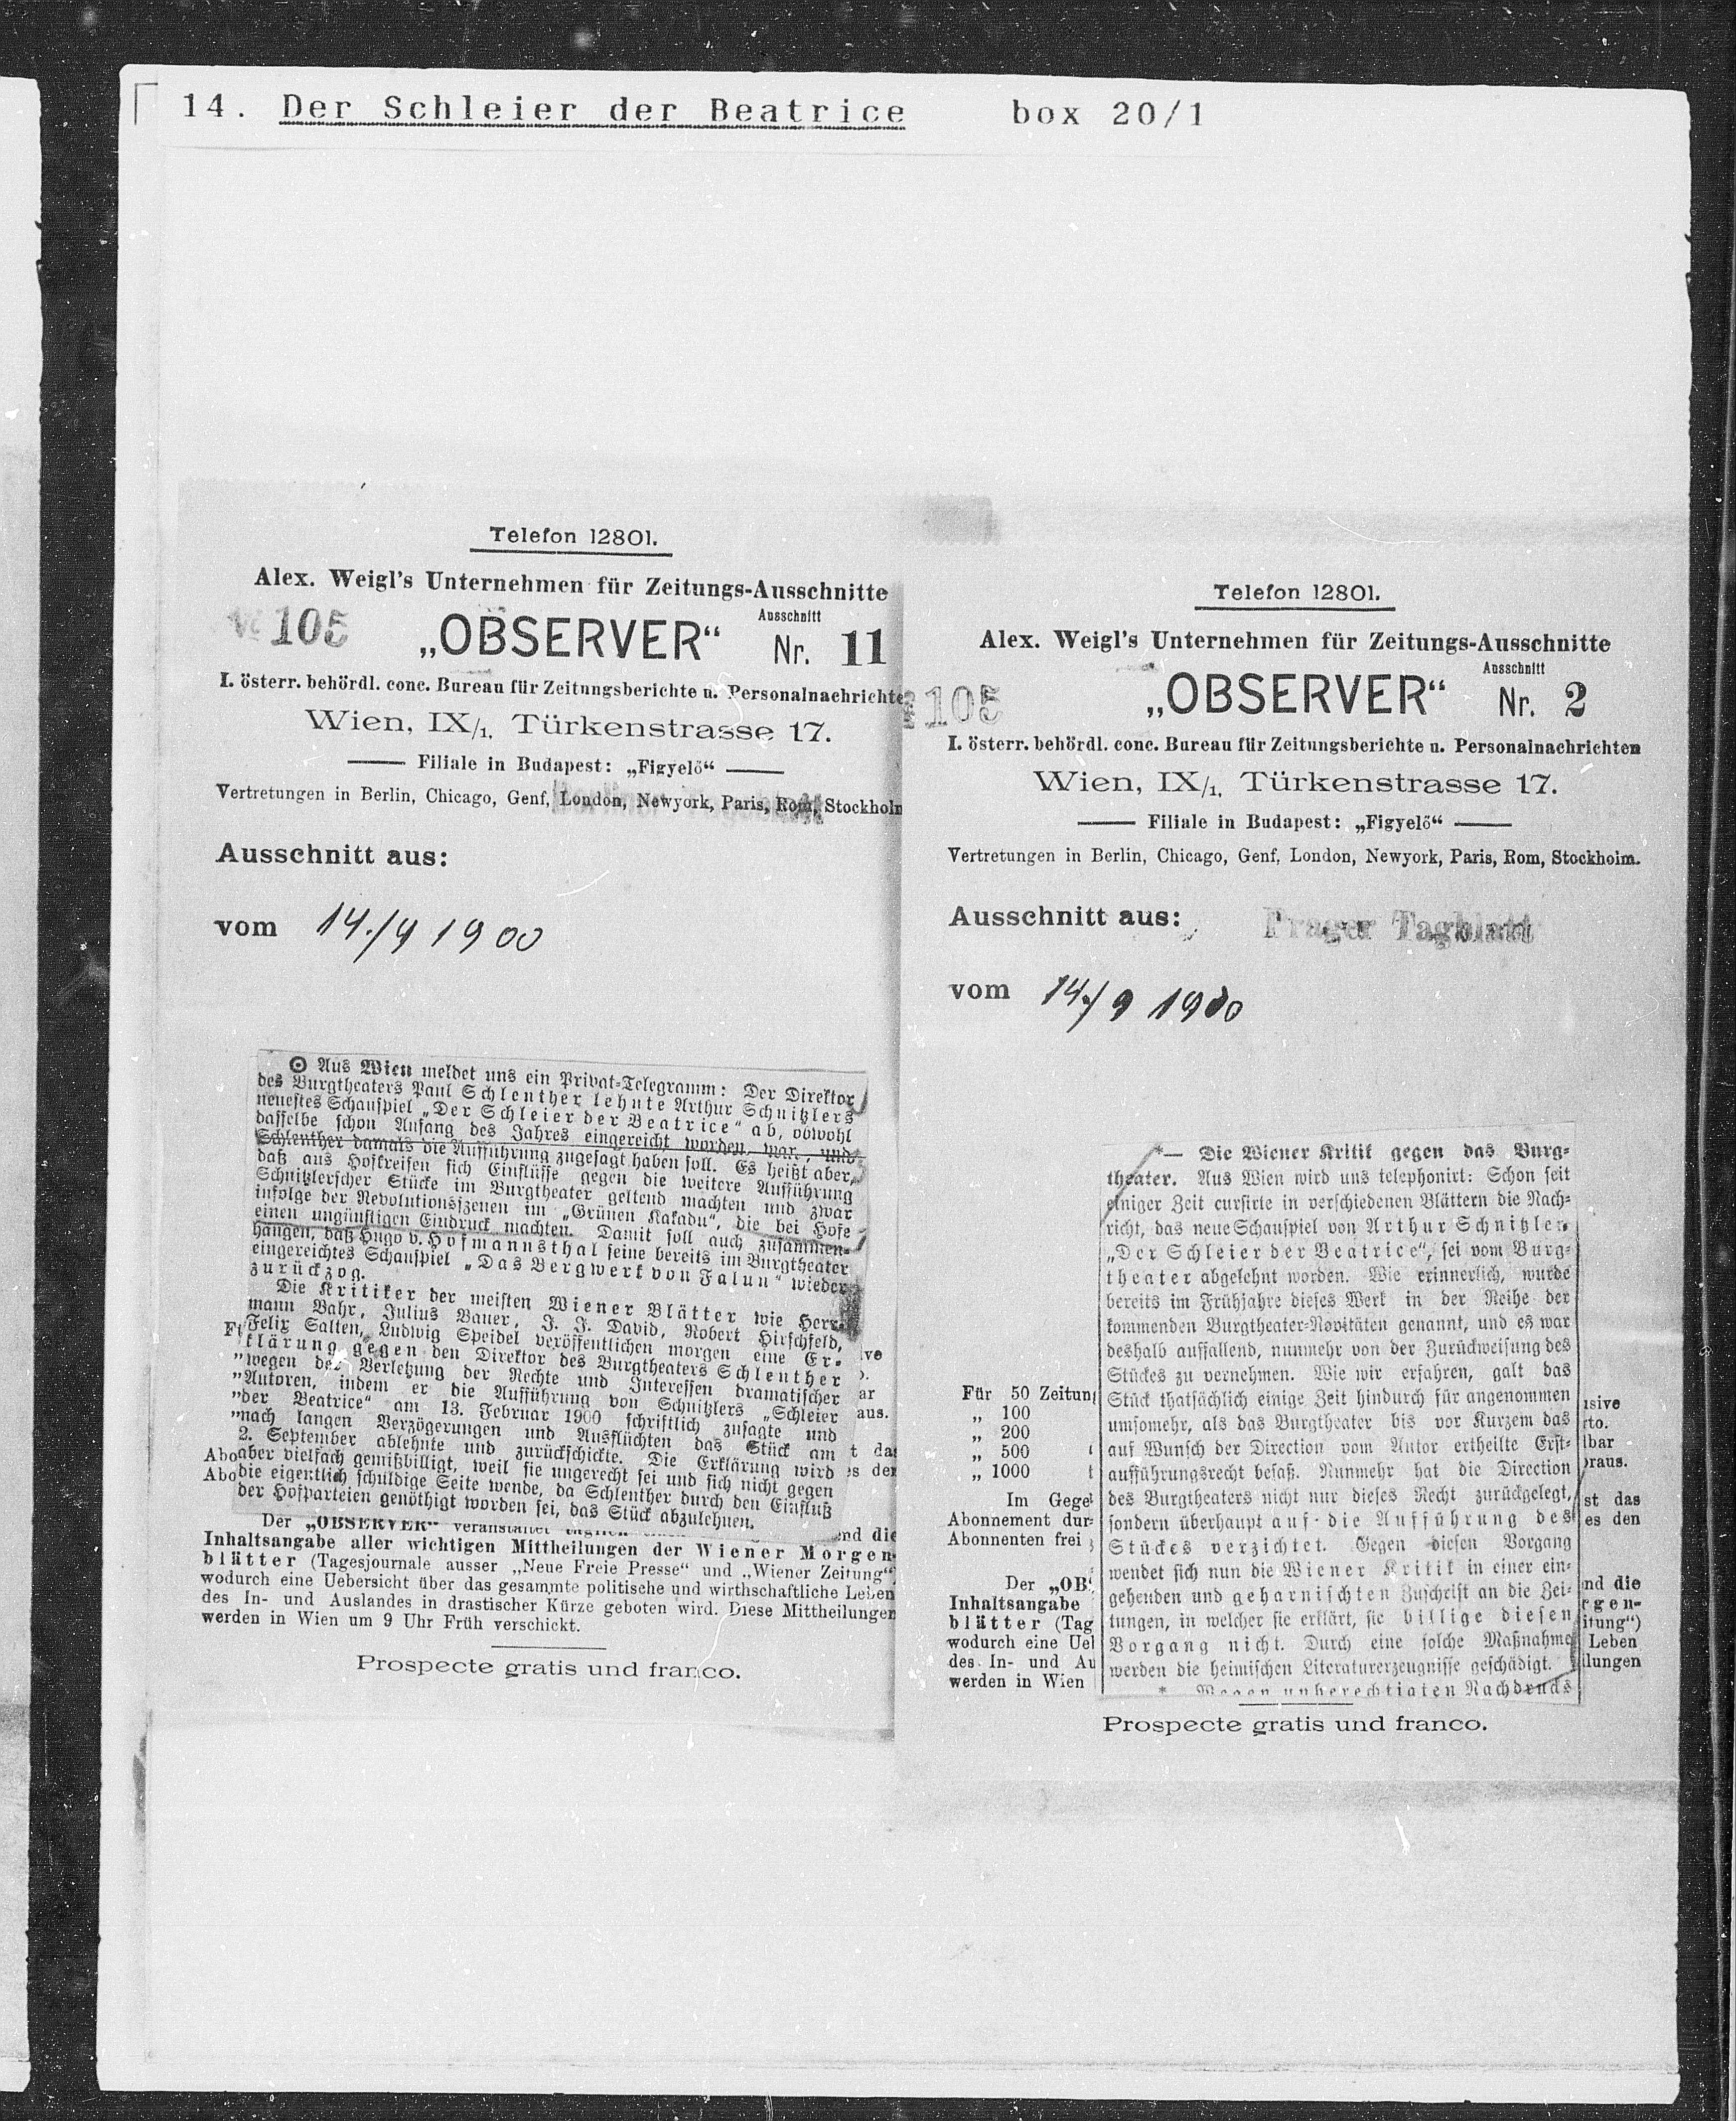 14. Der Schleier der Beatrice box 20/1
Telefon 12801.
Alex. Weigl's Unternehmen für Zeitungs-Ausschnitte
105
„OBSERVER“
Ausschnitt
Nr. 11
I. österr. behördl. conc. Bureau für Zeitungsberichte u. Personalnachrichte
Wien, IX/1, Türkenstrasse 17.
Filiale in Budapest: „Figyelő“
Vertretungen in Berlin, Chicago, Genf, London, Newyork, Paris, Rom, Stockholm
Ausschnitt aus:
vom 14./9 1900
⊙ Aus Wien meldet uns ein Privat-Telegramm: Der Direktor
des Burgtheaters Paul Schlenther lehnte Arthur Schnitzlers
neuestes Schauspiel „Der Schleier der Beatrice“ ab, obwohl
dasselbe schon Anfang des Jahres eingereicht worden war, und
Schlenther damals die Aufführung zugesagt haben soll. Es heißt aber,
daß aus Hofkreisen sich Einflüsse gegen die weitere Aufführung
Schnitzlerscher Stücke im Burgtheater geltend machten und zwar
infolge der Revolutionsszenen im „Grünen Kakadu“, die bei Hofe
einen ungünstigen Eindruck machten. Damit soll auch zusammen-
hängen, daß Hugo v. Hofmannsthal seine bereits im Burgtheater
eingereichtes Schauspiel „Das Bergwerk von Falun“ wieder
zurückzog.
Die Kritiker der meisten Wiener Blätter wie Herr-
mann Bahr, Julius Bauer, J. J. David, Robert Hirschfeld,
Felix Salten, Ludwig Speidel veröffentlichen morgen eine Er-
klärung gegen den Direktor des Burgtheaters Schlenther
"wegen der Verletzung der Rechte und Interessen dramatischer
"Autoren, indem er die Aufführung von Schnitzlers „Schleier
"der Beatrice“ am 13. Februar 1900 schriftlich zusagte und
"nach langen Verzögerungen und Ausflüchten das Stück am
2. September ablehnte und zurückschickte. Die Erklärung wird
aber vielfach gemißbilligt, weil sie ungerecht sei und sich nicht gegen
die eigentlich schuldige Seite wende, da Schlenther durch den Einfluß
der Hofparteien genöthigt worden sei, das Stück abzulehnen.
Der „OBSERVER“ veranstaltet täglich und die
Inhaltsangabe aller wichtigen Mittheilungen der Wiener Morgen-
blätter (Tagesjournale ausser „Neue Freie Presse“ und „Wiener Zeitung“
wodurch eine Uebersicht über das gesammte politische und wirthschaftliche Leben
des In- und Auslandes in drastischer Kürze geboten wird. Diese Mittheilungen
werden in Wien um 9 Uhr Früh verschickt.
Prospecte gratis und franco.
Telefon 12801.
Alex. Weigl's Unternehmen für Zeitungs-Ausschnitte
105
„OBSERVER“
Ausschnitt
Nr. 2
I. österr. behördl. conc. Bureau für Zeitungsberichte u. Personalnachrichten
Wien, IX/1, Türkenstrasse 17.
Filiale in Budapest: „Figyelő“
Vertretungen in Berlin, Chicago, Genf, London, Newyork, Paris, Rom, Stockholm.
Ausschnitt aus: Prager Tagblatt
vom 14./9 1900
*— Die Wiener Kritik gegen das Burg-
theater. Aus Wien wird uns telephonirt: Schon seit
einiger Zeit cursirte in verschiedenen Blättern die Nach-
richt, das neue Schauspiel von Arthur Schnitzler
„Der Schleier der Beatrice“, sei vom Burg-
theater abgelehnt worden. Wie erinnerlich, wurde
bereits im Frühjahre dieses Werk in der Reihe der
kommenden Burgtheater-Novitäten genannt, und es war
deshalb auffallend, nunmehr von der Zurückweisung des
Stückes zu vernehmen. Wie wir erfahren, galt das
Stück thatsächlich einige Zeit hindurch für angenommen
umsomehr, als das Burgtheater bis vor Kurzem das
auf Wunsch der Direction vom Autor ertheilte Erst-
aufführungsrecht besaß. Nunmehr hat die Direction
des Burgtheaters nicht nur dieses Recht zurückgelegt,
sondern überhaupt auf die Aufführung des
Stückes verzichtet. Gegen diesen Vorgang
wendet sich nun die Wiener Kritik in einer ein-
gehenden und geharnischten Zuschrift an die Zei-
tungen, in welcher sie erklärt, sie billige diesen
Vorgang nicht. Durch eine solche Maßnahme
werden die heimischen Literaturerzeugnisse geschädigt.
* Wegen unberechtigten Nachdrucks
Für 50 Zeitung
„ 100
„ 200
„ 500
„ 1000
Im Gegen
Abonnement dur
Abonnenten frei
Der „OB
Inhaltsangabe
blätter (Tag
wodurch eine Uel
des In- und Au
werden in Wien
Prospecte gratis und franco.